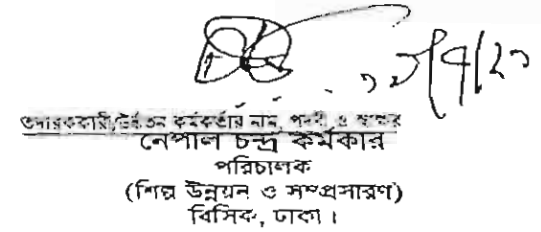 তদারককারী/উর্ধ্বতন কর্মকর্তার নাম, পদবী ও স্বাক্ষর
নেপাল চন্দ্র কর্মকার
পরিচালক
(শিল্প উন্নয়ন ও সম্প্রসারণ)
বিসিক, ঢাকা।